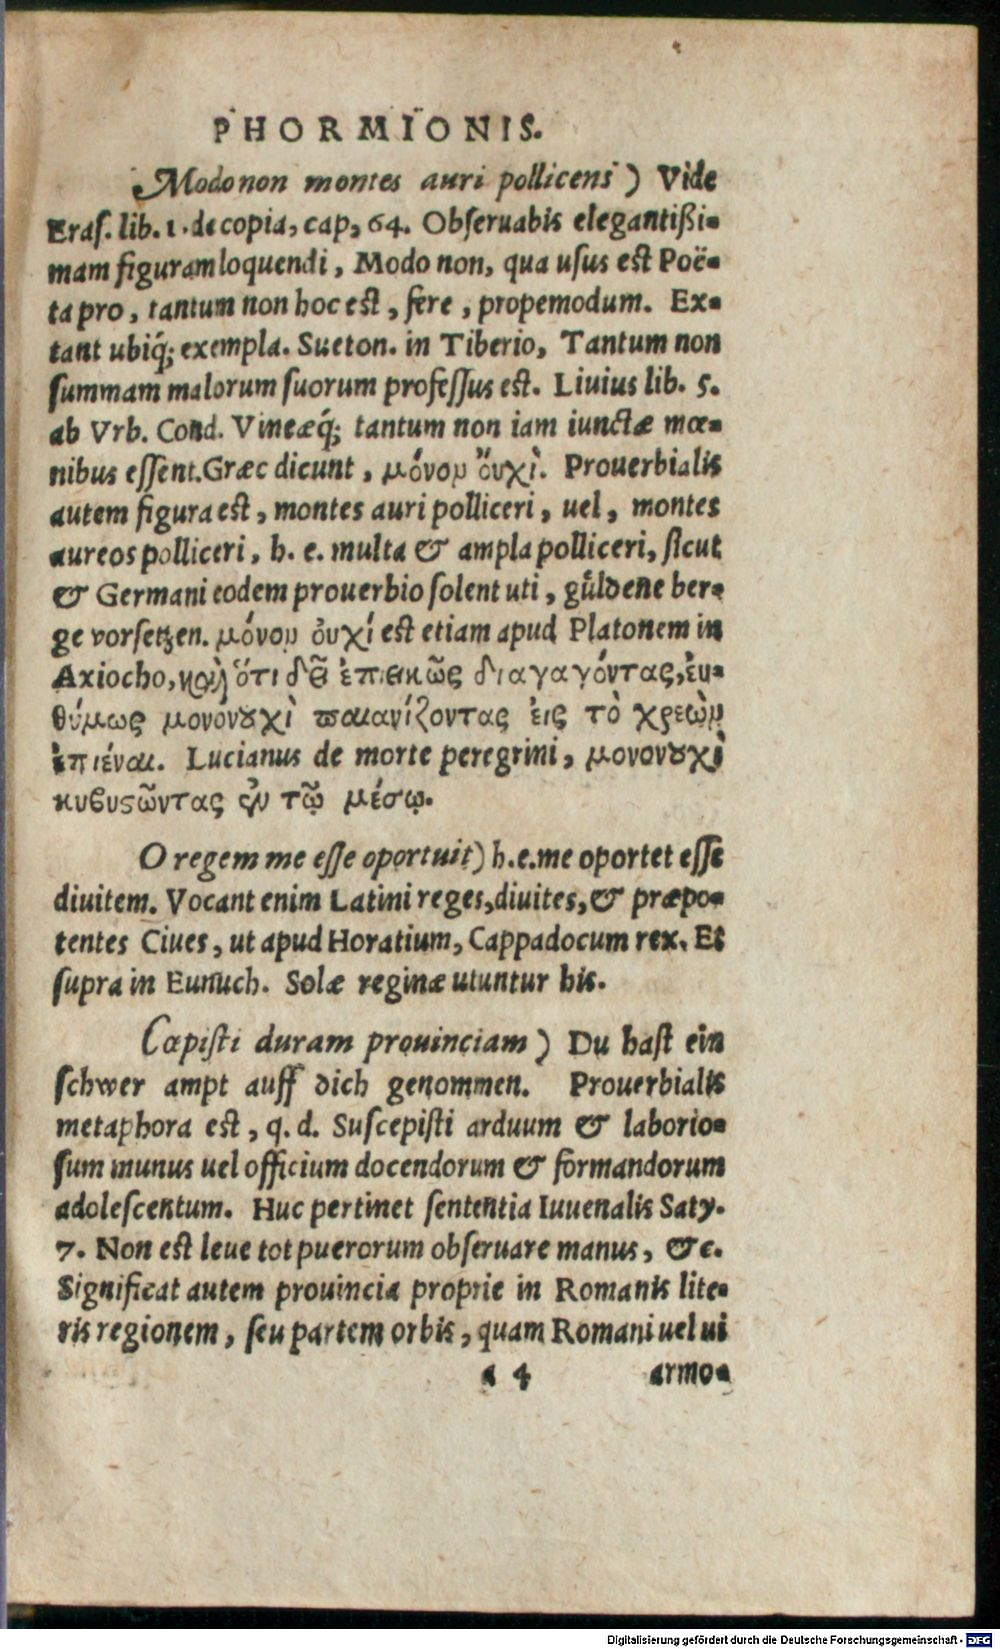 PHORMIONIS.
Modo non montes auri pollicens) Vide
Eras. lib. 1. de copia, cap, 64. Obseruabis elegantißi-
mam figuram loquendi, Modo non, qua usus est Poë-
ta pro, tantum non hoc est, fere, propemodum. Ex-
tant ubiq́; exempla. Sueton. in Tiberio, Tantum non
summam malorum suorum professus est. Liuius lib. 5.
ab Vrb. Cond. Vineæq́; tantum non iam iunctæ mœ-
nibus essent. Græc dicunt, μόνον ὄυχὶ. Prouerbialis
autem figura est, montes auri polliceri, uel, montes
aureos polliceri, h. e. multa & ampla polliceri, sicut
& Germani eodem prouerbio solent uti, gůldene ber-
ge vorsetzen. μόνον ὀυχί est etiam apud Platonem in
Axiocho, καὶ ὅτι δεῖ ἐπιεικῶς διαγαγόντας, ἐυ-
θύμως μονονουχὶ παιανίζοντας ἐις τὸ χρεὼν
ἐπιέναι. Lucianus de morte peregrini, μονονουχὶ
κυβιστῶντας ἐν τῷ μέσῳ.
O regem me esse oportuit) h.e. me oportet esse
diuitem. Vocant enim Latini reges, diuites, & præpo-
tentes Ciues, ut apud Horatium, Cappadocum rex. Et
supra in Eunuch. Solæ reginæ utuntur his.
Cœpisti duram prouinciam) Du hast ein
schwer ampt auff dich genommen. Prouerbialis
metaphora est, q. d. Suscepisti arduum & laborio-
sum munus uel officium docendorum & formandorum
adolescentum. Huc pertinet sententia Iuuenalis Saty.
7. Non est leue tot puerorum obseruare manus, &c.
Significat autem prouincia proprie in Romanis lite-
ris regionem, seu partem orbis, quam Romani uel ui
a 4 armo-
Digitalisierung gefördert durch die Deutsche Forschungsgemeinschaft - DFG